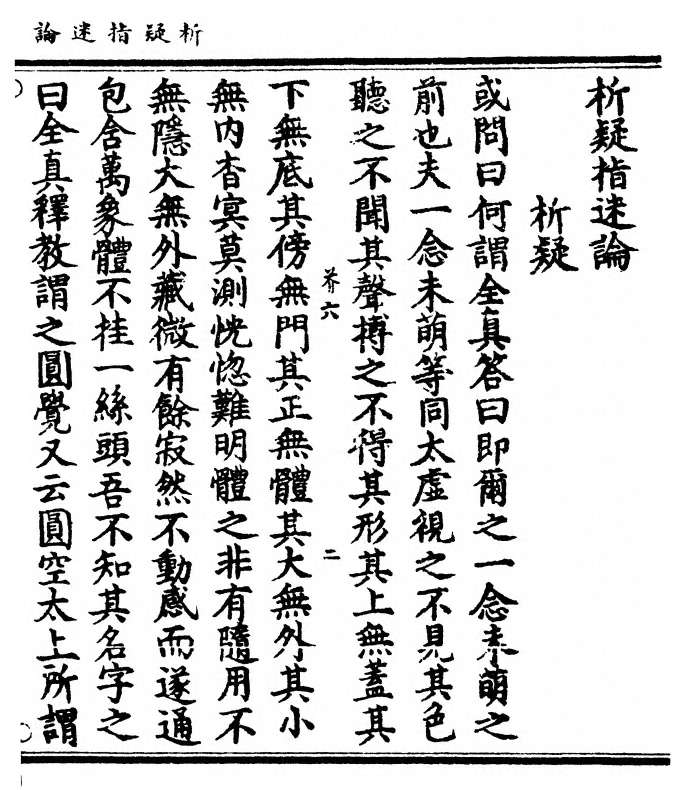 析疑指迷論
析疑指迷論
析疑
或問曰何謂全真答曰即爾之一念未萌之
前也夫一念未萌等同太虛視之不見其色
聽之不聞其聲搏之不得其形其上無蓋其
下無底其傍無門其正無體其大無外其小
無內杳冥莫測恍惚難明體之非有隨用不
無隱大無外藏微有餘寂然不動感而遂通
包含萬象體不挂一絲頭吾不知其名字之
曰全真釋教謂之圓覺又云圓空太上所謂
芥六
二